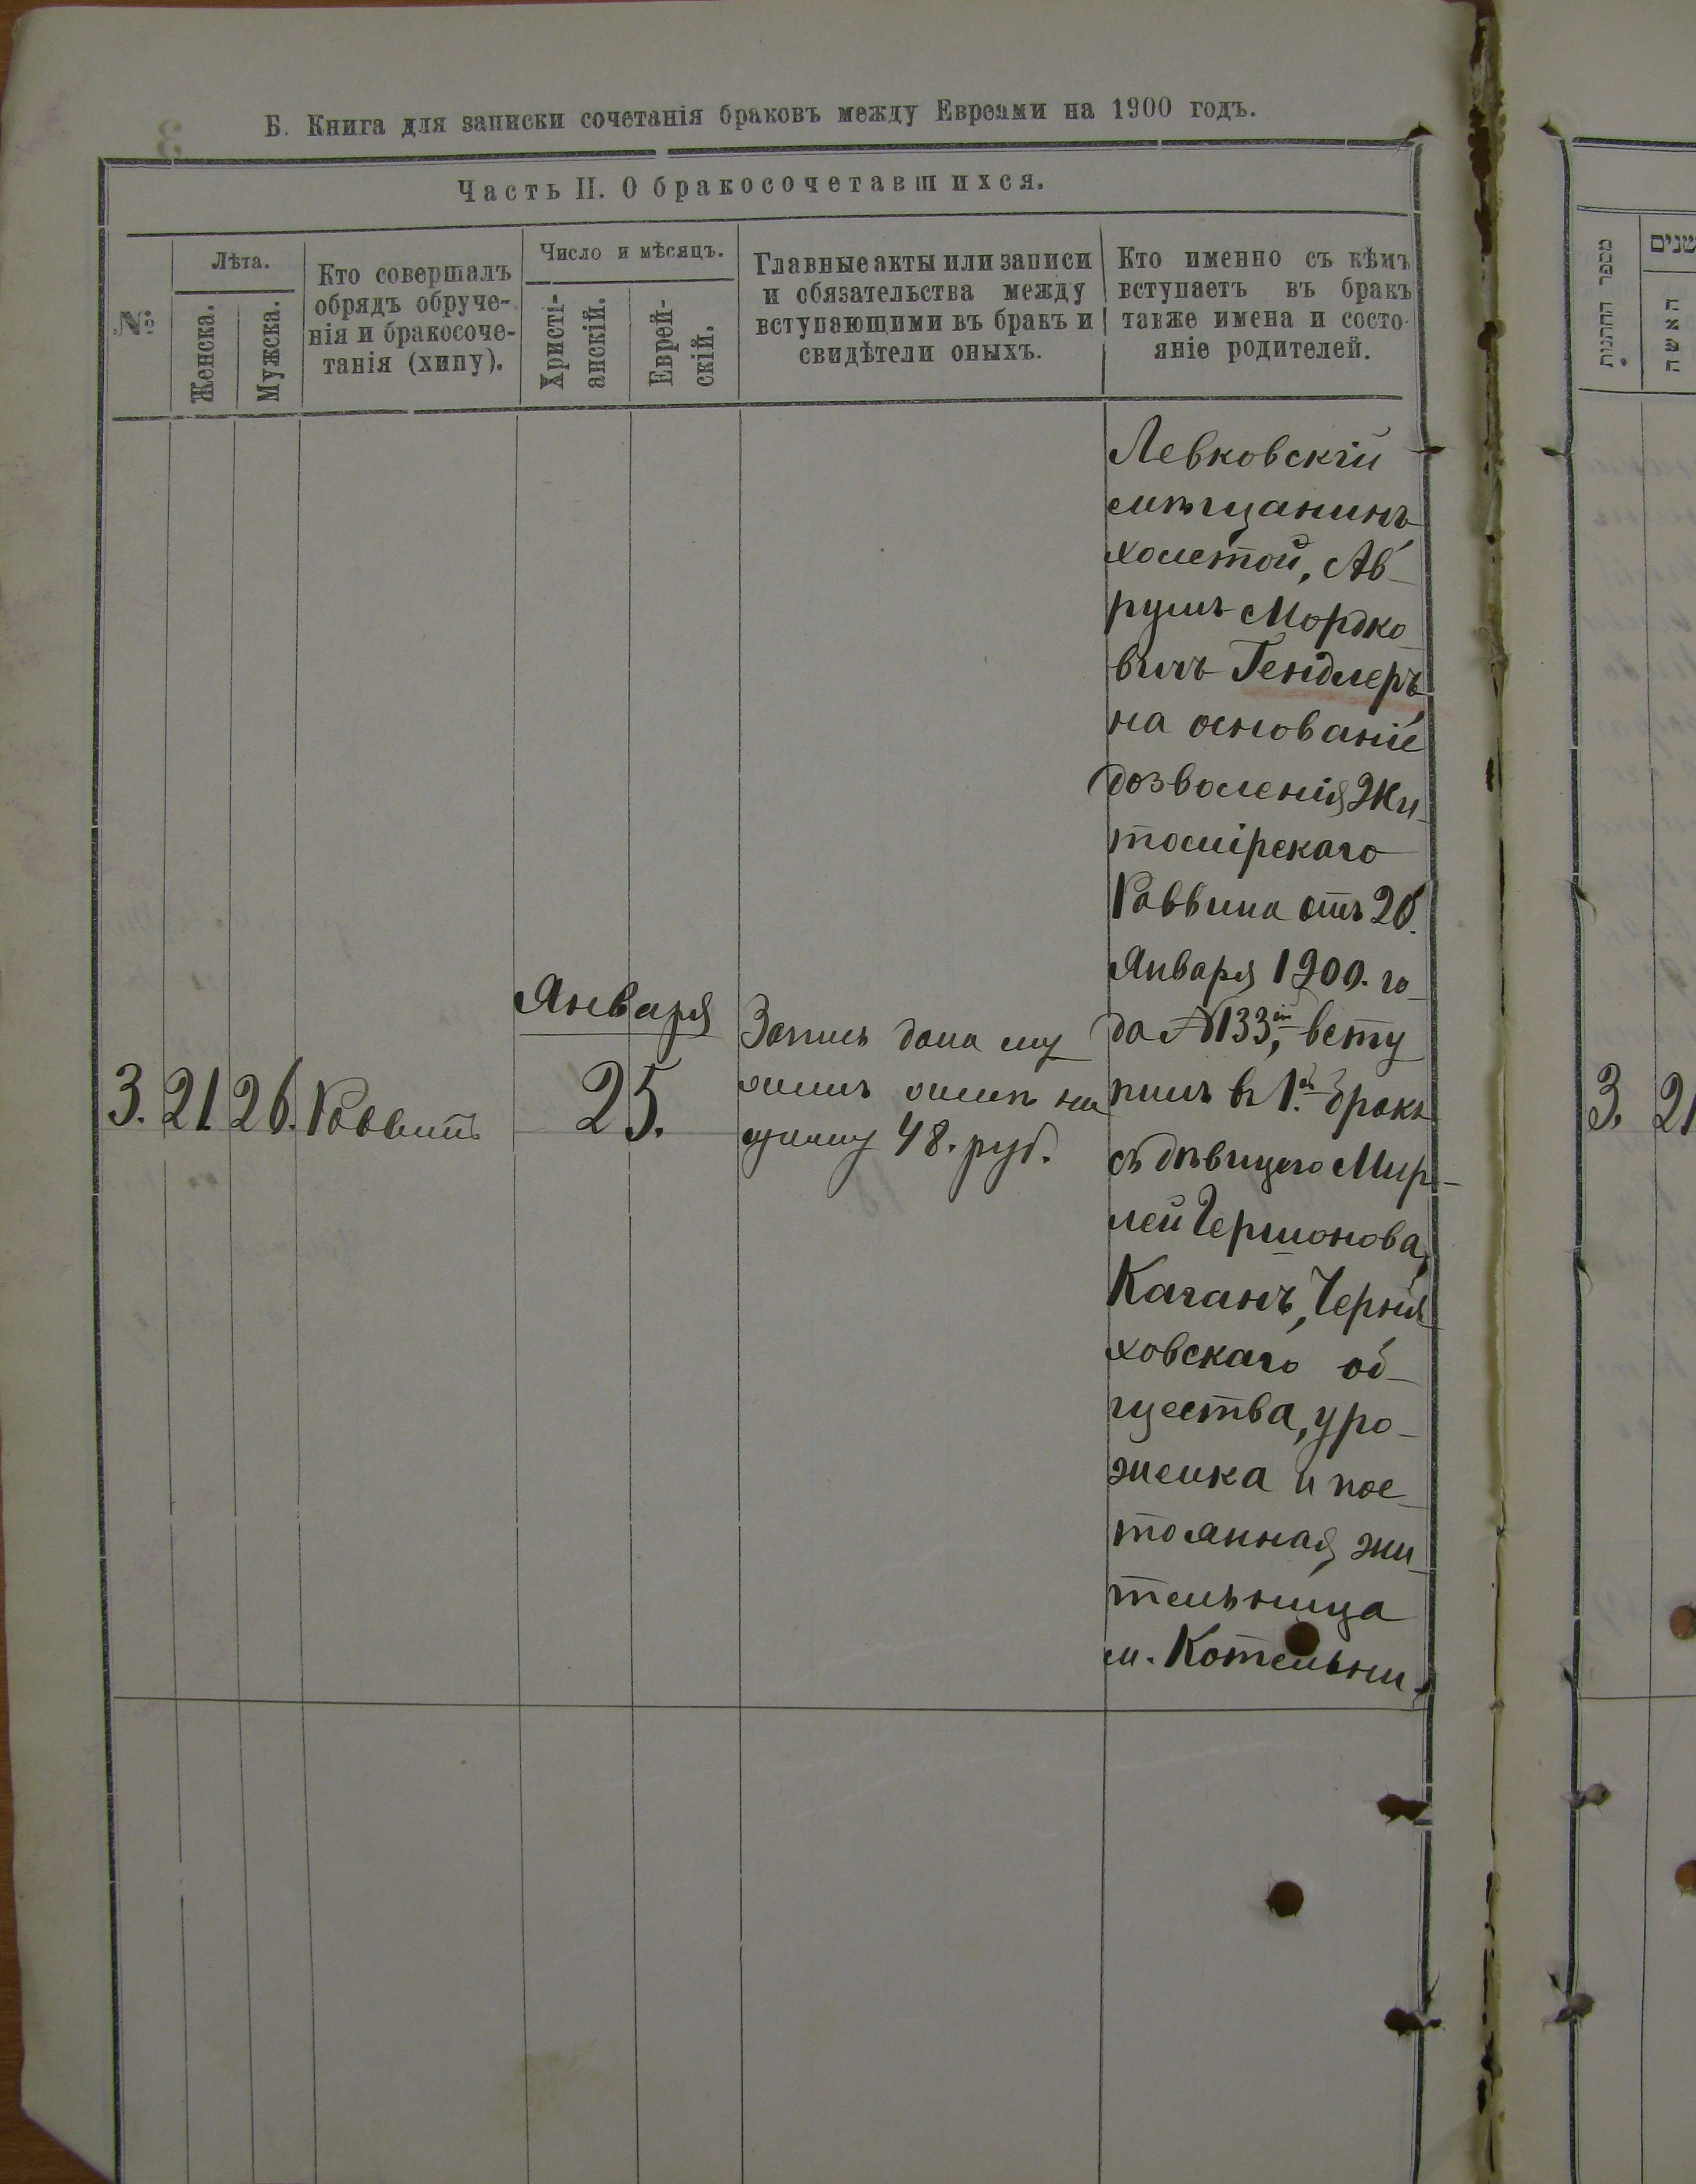 Б. Книга для записки сочетанія браковъ между Евреами на 1900 годъ.
Часть II. О бракосочетавшихся.
№
Лѣта.
Женска.
Мужска.
Кто совершалъ
обрядъ обруче-
нія и бракосоче-
танія (хипу).
Число и мѣсяцъ.
Христі-
анскій.
Еврей-
скій.
Главные акты или записи
и обязательства между
вступающими въ бракъ и
свидѣтели оныхъ.
Кто именно съ кѣмъ
вступаетъ въ бракъ
также имена и состо-
яніе родителей.
3.
21
26.
Раввинъ
Января
25.
Запись дана му
жемъ женѣ на
сумму 48. руб.
Левковскій
мѣщанинъ
холостой, Ав-
румъ Мордко
вичъ Гендлеръ
на основаніе
дозволенія Жи-
томірскаго
Раввина отъ 20.
Января 1900. го-
да №133, всту
пилъ въ 1.й бракъ
съ дѣвицею Мир-
лей Гершонова
Каганъ, Черня
ховскаго об-
щества, уро-
женка и пос-
тоянная жи-
тельница
м. Котельни
מספר החתונות
שנים
האשה
3.
21